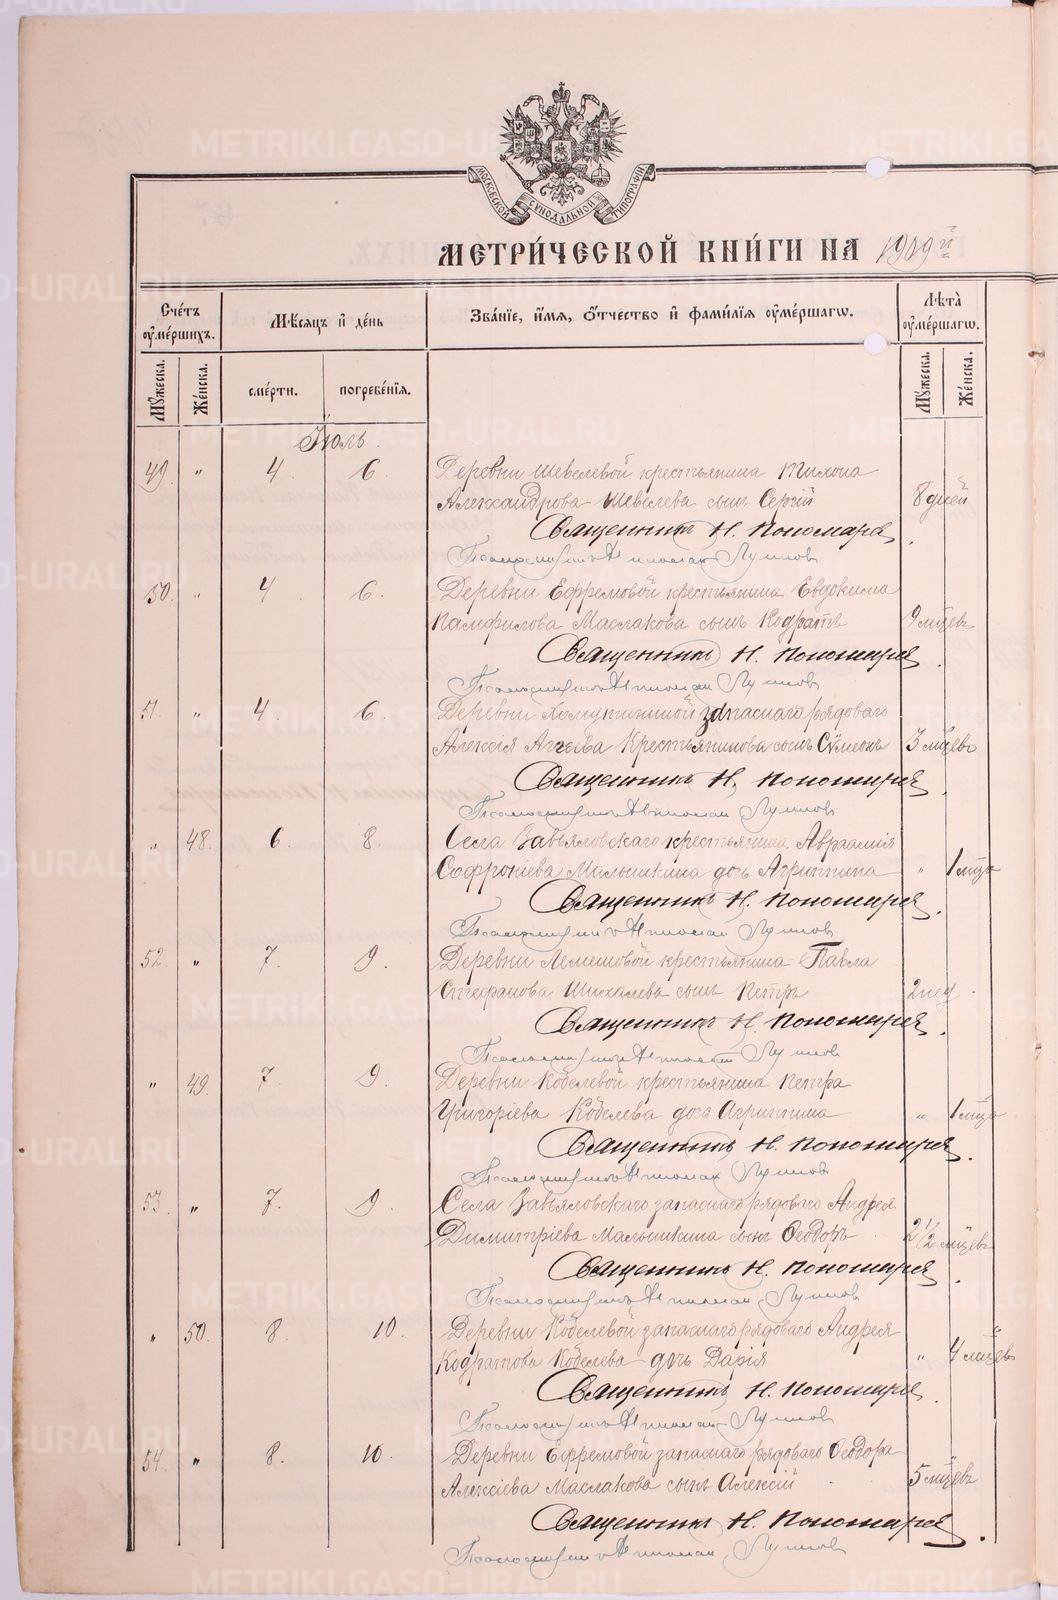 МОСКОВСКОЙ СѴНОДАЛЬНОЙ ТИПОГРАФІИ
МЕТРИ́ЧЕСКОЙ КНИ́ГИ НА 1909й
Сче́тъ ᲂумершихъ.
Мѣ́сяцъ и҆ де́нь
Зва́нїе, и҆́мѧ, ѻ҆́тчество и҆ фами́лїѧ ᲂуме́ршагѡ.
Лѣ́та ᲂуме́ршагѡ.
Мꙋ́жеска.
Же́нска.
сме́рти.
погребе́нїѧ.
Мꙋ́жеска.
Же́нска.
Іюль.
49. " 4 6 Деревни Шевелевой крестьянина Тихона
Александрова Шевелева сынъ Сергій 8 дней
Священникъ Н. Пономарев
Псаломщикъ Лупинов
50. " 4 6. Деревни Ефремовой крестьянина Евдокима
Памфилова Маслакова сынъ Кодратъ 9 мѣцевъ
Священникъ Н. Пономарев
Псаломщикъ Лупинов
51. " 4. 6. Деревни запаснаго рядоваго
Алексія Аггеева Крестьянинова сынъ Сѵмеонъ 3 мѣцевъ
Священникъ Н. Пономарев
Псаломщикъ Лупинов
" 48. 6. 8. Села Завьяловскаго крестьянина Авраамія
Софроніева Малышкина дочь Агриппина " 1 мѣцъ
Священникъ Н. Пономарев
Псаломщикъ Лупинов
52. " 7. 9. Деревни Лемешовой крестьянина Павла
Стефанова Шихалева сынъ Петръ 2 нед.
Священникъ Н. Пономарев
Псаломщикъ Лупинов
" 49. 7. 9. Деревни Кобелевой крестьянина Петра
Григоріева Кобелева дочь Агриппина " 1 мѣцъ
Священникъ Н. Пономарев
Псаломщикъ Лупинов
53. " 7. 9. Села Завьяловскаго запаснаго рядоваго Андрея
Димитріева Малышкина сынъ Ѳеодоръ 2 1/2 мѣцевъ
Священникъ Н. Пономарев
Псаломщикъ Лупинов
" 50. 8. 10. Деревни Кобелевой запаснаго рядоваго Андрея
Кодратова Кобелева дочь Дарія " 4 мѣцевъ
Священникъ Н. Пономарев
Псаломщикъ Лупинов
54. " 8. 10. Деревни Ефремовой запаснаго рядоваго Ѳеодора
Алексіева Маслакова сынъ Алексій 5 мѣцевъ
Священникъ Н. Пономарев
Псаломщикъ Лупинов
METRIKI.GASO-URAL.RU